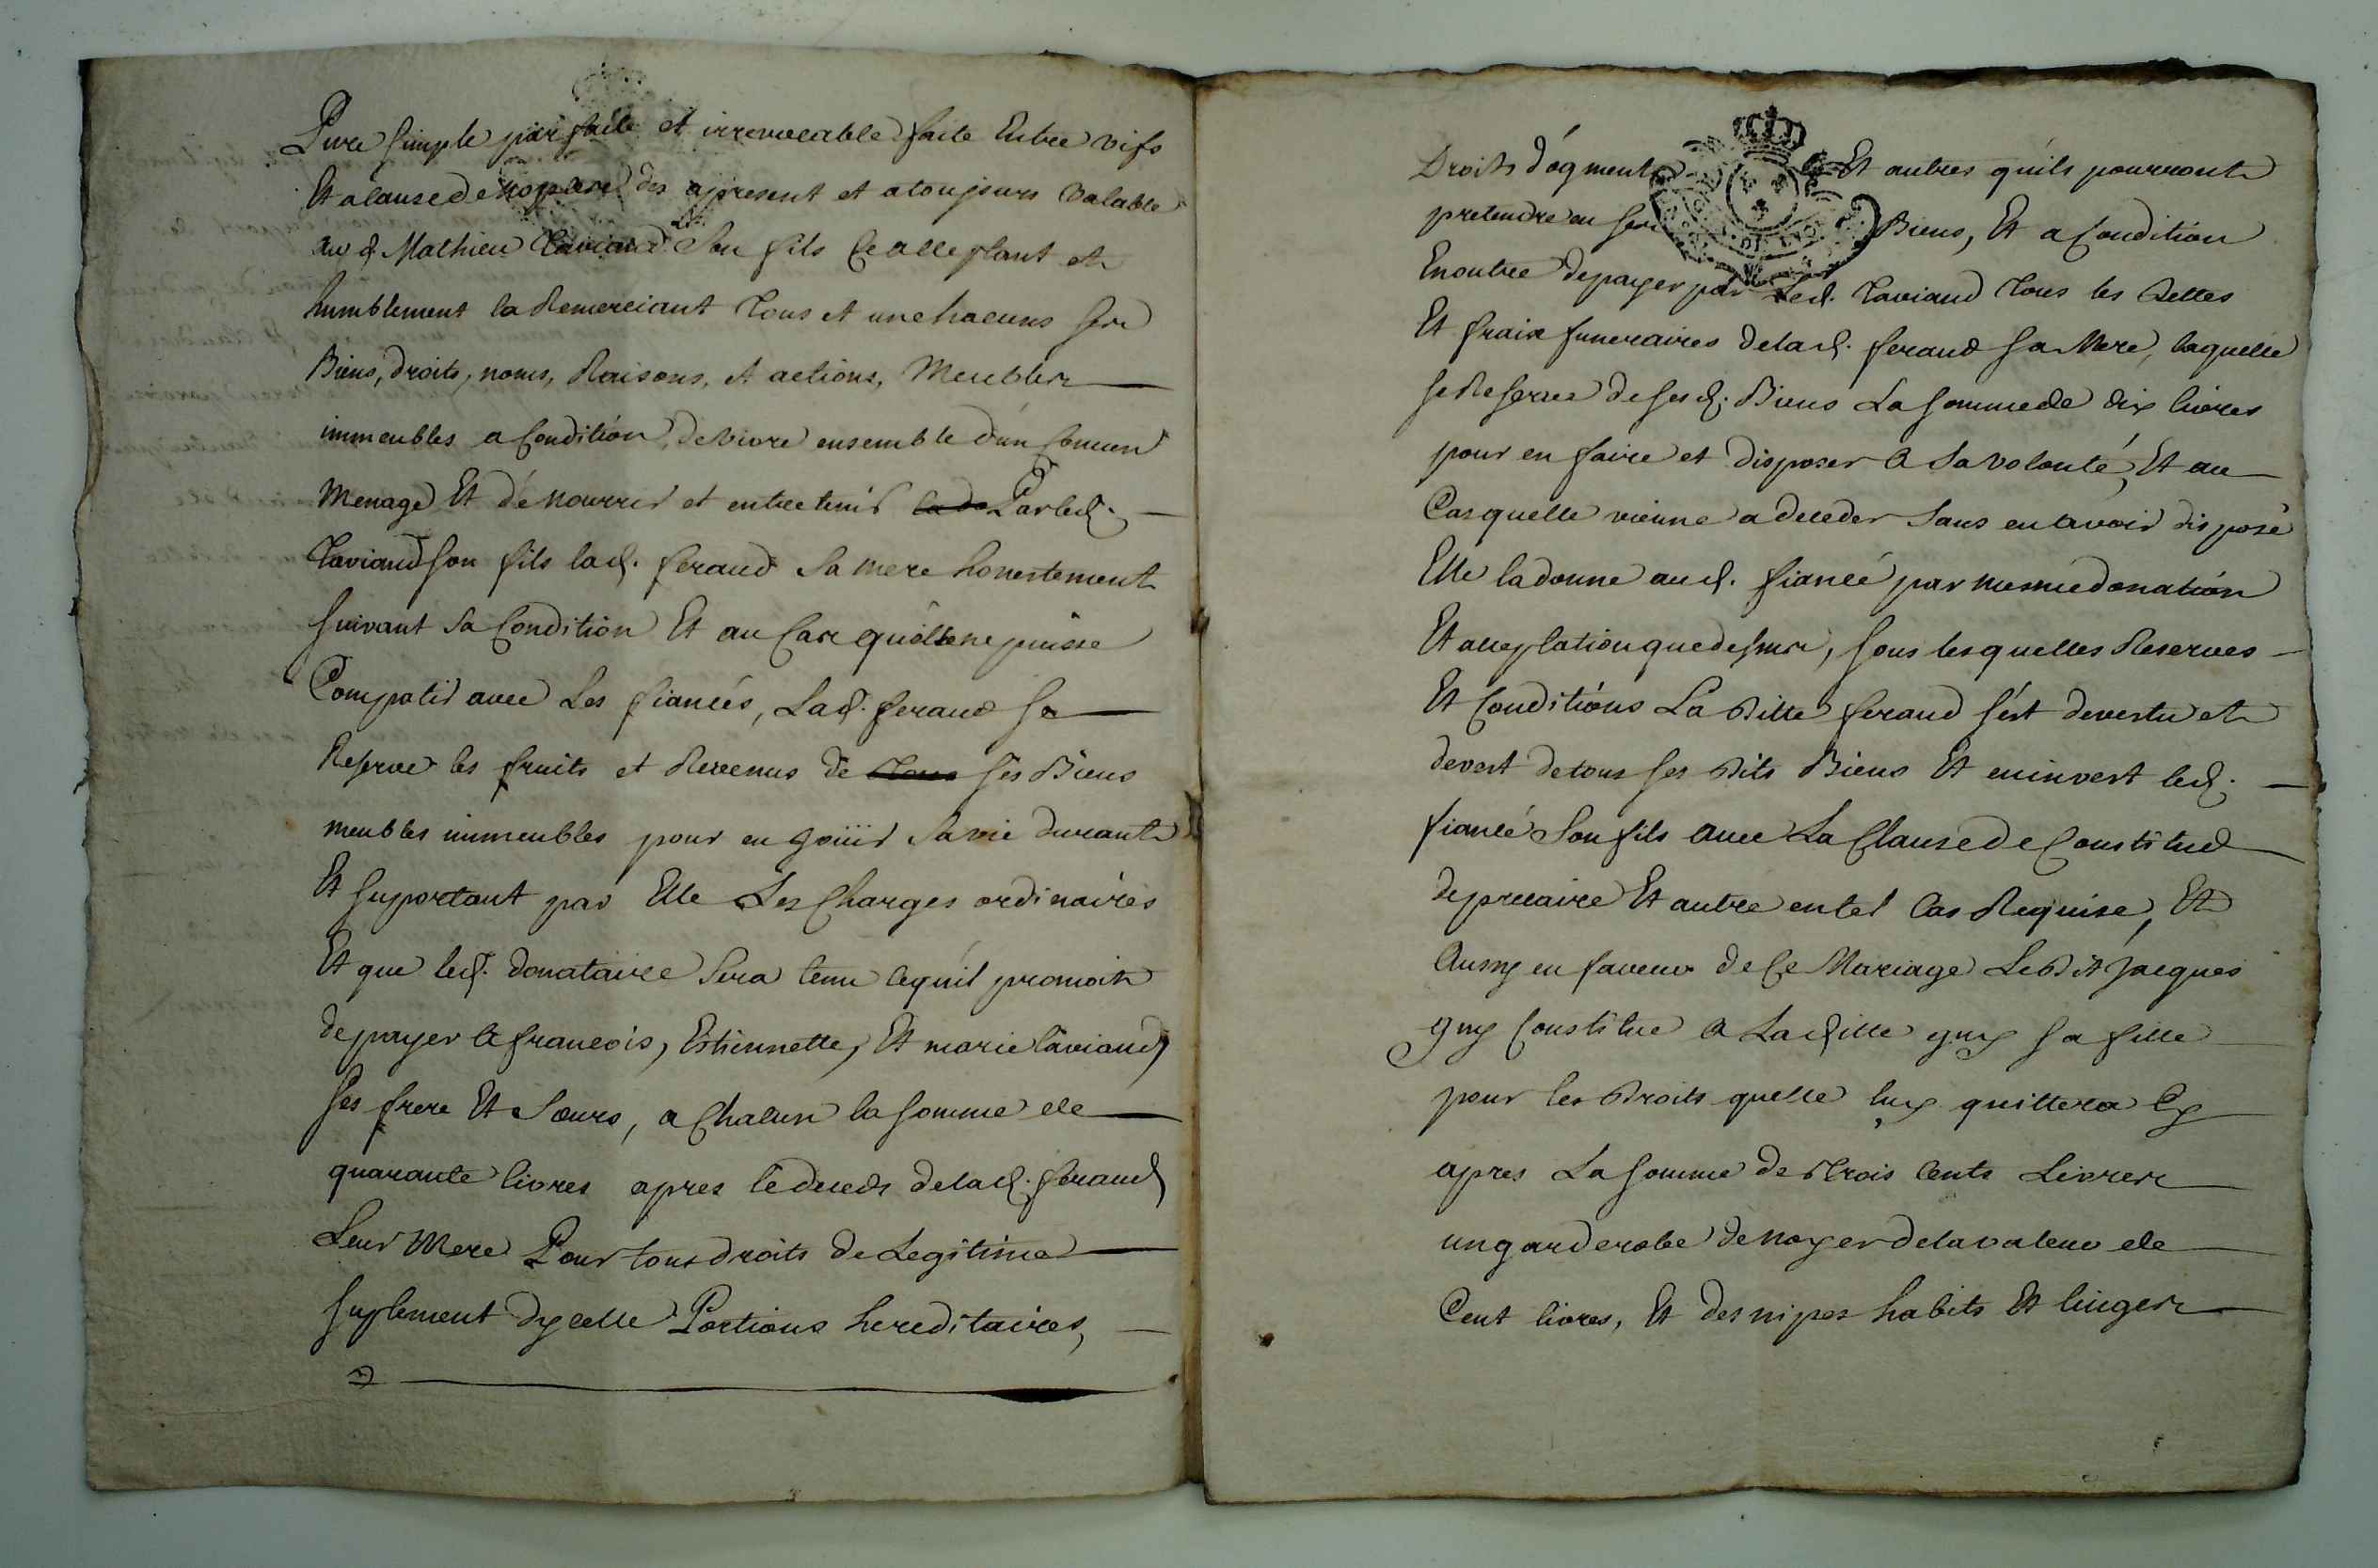 Pure Simple parfaite et irrevocable faite Entre vifs
Et a Cause de noces des apresent et a toujours Valable
aud Mathieu Taviaud Son fils Cealleptant et
humblement la Remerciant Tous et unchacuns Ses
Biens, droits, noms, Raisons, et actions, Meubles
immeubles a Condition, de Vivre ensemble d'un Comun
Menage Et dé nourrir et entretenir Par led.
Taviaud son fils lad. feraud Sa mere honestement
Suivant Sa Condition Et au Cas quélle ne puisse
Compatir avec Les fiancés, Lad. feraud Se
Reserve les fruits et Revenus de Ses Biens
meubles immeubles pour en joüir Sa vie durant
Et Suportant par Elle Les Charges ordinaires
Et que led. donataire Sera tenu cequíl promoit
de payer a francois, Estiennette, Et marie taviaud
Ses frere Et Sœurs, a Chacun la Somme de
quarante livres apres le deceds de lad. feraud
Leur Mere Pour tous droits de Legitime
Suplement dycelle Portions hereditaires,
Droits d'ogment Et autres quíls pourront
pretendre en ses Biens, Et a Condition
En outre de payer par Led. Taviaud Tous les dettes
Et fraix funeraires de lad. feraud Sa Mere, laquelle
Se Reserve de Sesd. Biens La Somme de dix livres
pour en faire et disposer a Sa volonté, Et au
Cas quelle vienne a deceder Sans en avoir disposé
Elle la donne aud. fiancé par mesme donation
Et acceptation que dessus, Sous les quelles Reserves
Et Conditions La Ditte feraud s'est devestu et
devest de tous Ses Dits Biens Et en invest led.
fiancé Son fils avec La Clause de Constitué
de precaire Et autre en tel Cas Requise, Et
Aussy en faveur de Ce Mariage Le Dit Jacques
guy Constitue a Laditte guy Sa fille
pour les Droits quelle luy quittera Cy
apres La Somme de Trois Cents Livres
un garderobe de noyer de la valeur de
Cent livres, Et des nipes habits Et linges